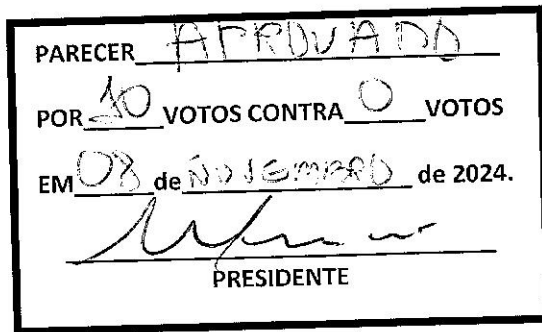 PARECER APROVADO
POR 10 VOTOS CONTRA 0 VOTOS
EM 08 de NOVEMBRO de 2024.
PRESIDENTE